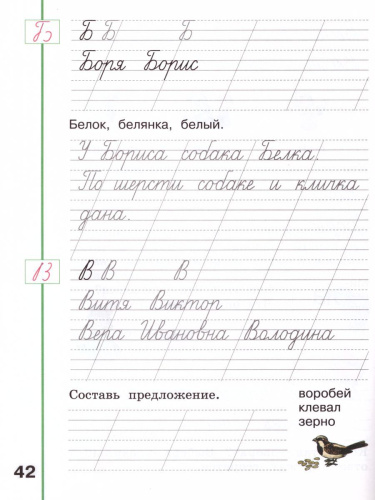 Б Б Б Б
Боря Борис
Белок, белянка, белый.
У Бориса собака Белка.
По шерсти собаке и кличка
дана.
В В В В
Витя Виктор
Вера Ивановна Володина
Составь предложение.
воробей
клевал
зерно
42